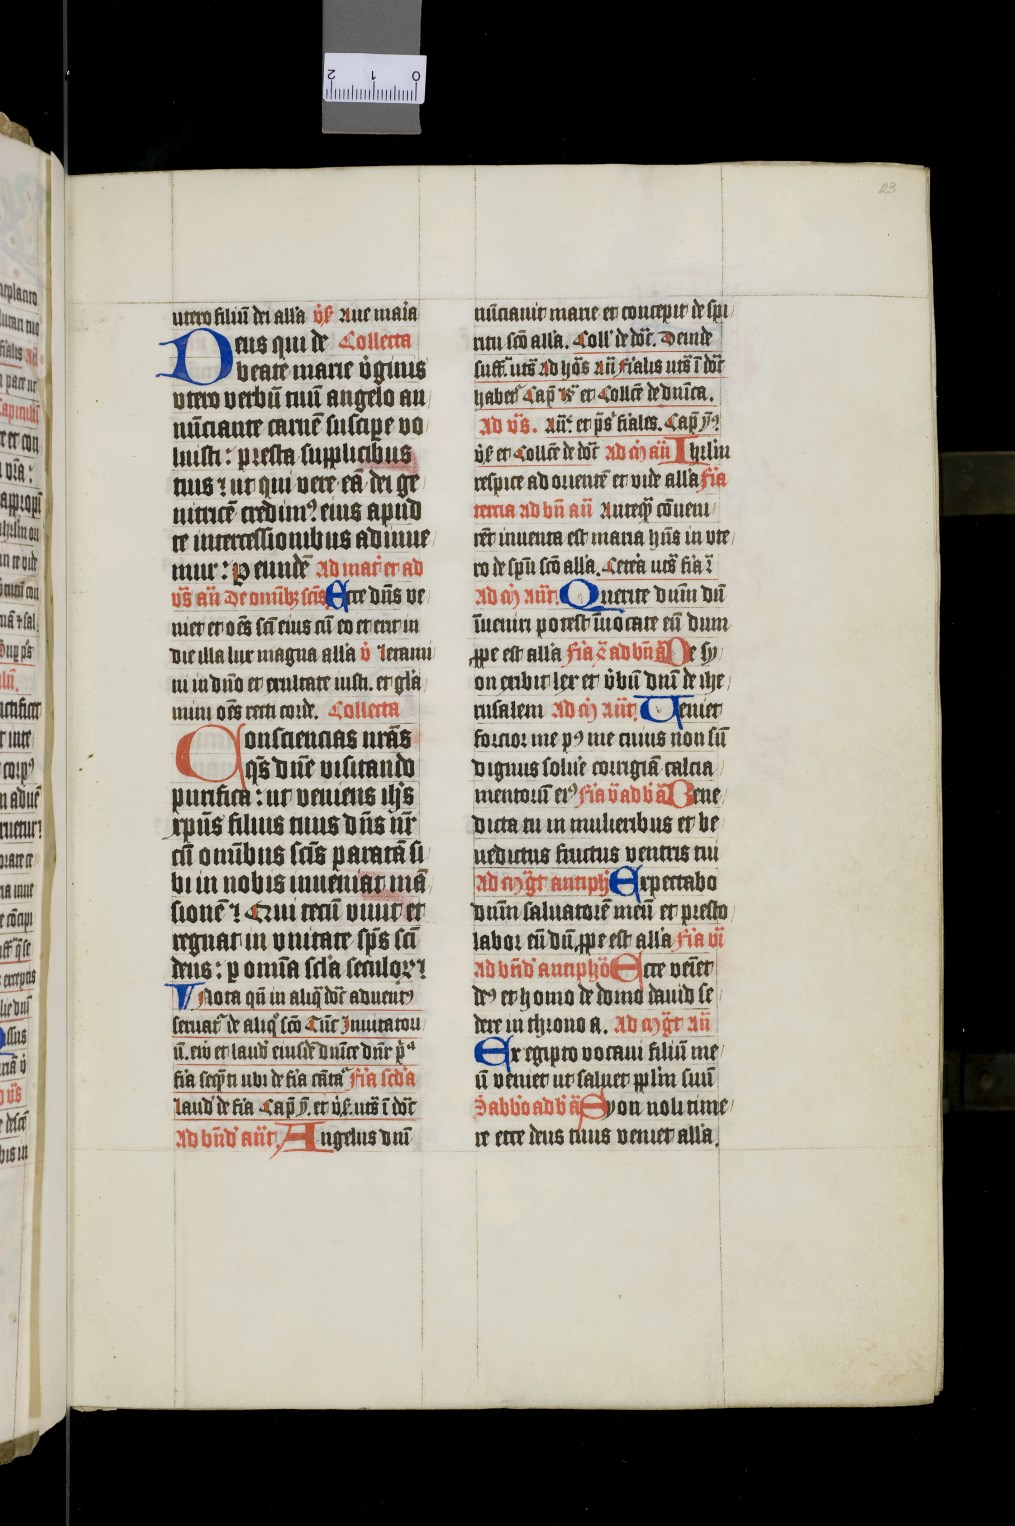 23
utero filiū dei alla v̾ Aue maīa
Deus qui de Collecta
beate marie v̾ginis
vtero verbū tuū angelo an
nūciante carnē suscipe vo
luisti: presta supplicibus
tuis ut qui vere eā dei ge
nitricē credimꝰ eius apud
te intercessionibus adiuue
mur: ꝑ eundē Ad mat̄ et ad
vs̄ añ De omībꝫ scīs Ecce dn̄s ve
niet et oēs sci̅ eius cū eo et erit in
die illa lux magna alla v̾ letami
ni in dn̄o et exultate iusti. et gla
mini oēs recti corde. Collecta
Consciencias nr̄as
qs̄ dn̄e visitando
purifica: ut veniens ih̄s
xp̄us filius tuus dn̄s nr̄
cū omībus scīs paratā si
bi in nobis inueniat mā
sionē Qui tecū viuit et
regnat in vnitate sp̄s sc̄i
deus: p omīa sc̄la seculoꝝ
Nota qn̄ in aliq̄ dōt aduentꝰ
seruat᷑ de aliqͦ scō Tūc Inuitatori
ū. ew̄ et laud̄ eiusdē dn̄ice dn̄r p̄ᵃ
fīa seqn̄ti ubi de fīa cāta᷑ Fīa scd̄a
laud̄ de fīa Cap̄ ẏ. et v̾. uts̄ ī dōt
Ad bn̄d̄ añt. Angelus dn̄i
nūciauit marie et concepit de spi
ritu scō alla. Coll̄ de dōt. Deinde
suff̄ uts̄ Ad hōs añ fīalis uts̄ ī dōt
habet᷑ Cap̄ et Collēe de dn̄ica.
Ad vs̄. Añ: et ps̄ fīales. Cap̄ ẏ
v̾ et Collēe de dōt ad m̄ añ Ihrlm̄
respice ad orientē et vide alla Fīa
tercia ad bn̄ añ Anteqͣ cōueni
rēt inuenta est maria hn̄s in vte
ro de spū scō alla. Cetēa uts̄ fīa
Ad m̄ añt. Querite dn̄m dū
īueniri potest īuocate eū dum
ꝓpe est alla fīa ad bn̄ De sy
on exibit lex et v̾bū dn̄i de ihe
rusalem Ad m̄ añt. Veniet
forcior me pꝰ me cuius non sū
dignus solue̅ corrigiā calcia
mentorū eiꝰ Fīa v̄ ad b̄ a Bene
dicta tu in mulieribus et be
nedictus fructus ventris tui
Ad mg̅t antiph Expectabo
dn̄m saluatorē meū et presto
labor eū dū ꝓpe est alla Fīa vi
Ad bn̄d̄ antipho Ecce veniet
deꝰ et homo de domo dauid se
dere in throno a. Ad mg̅t añ
Ex egipto vocaui filiū me
ū veniet ut saluet pplm̄ suū
Sabb̄o ad b̄ a Syon noli time
re ecce deus tuus veniet alla.